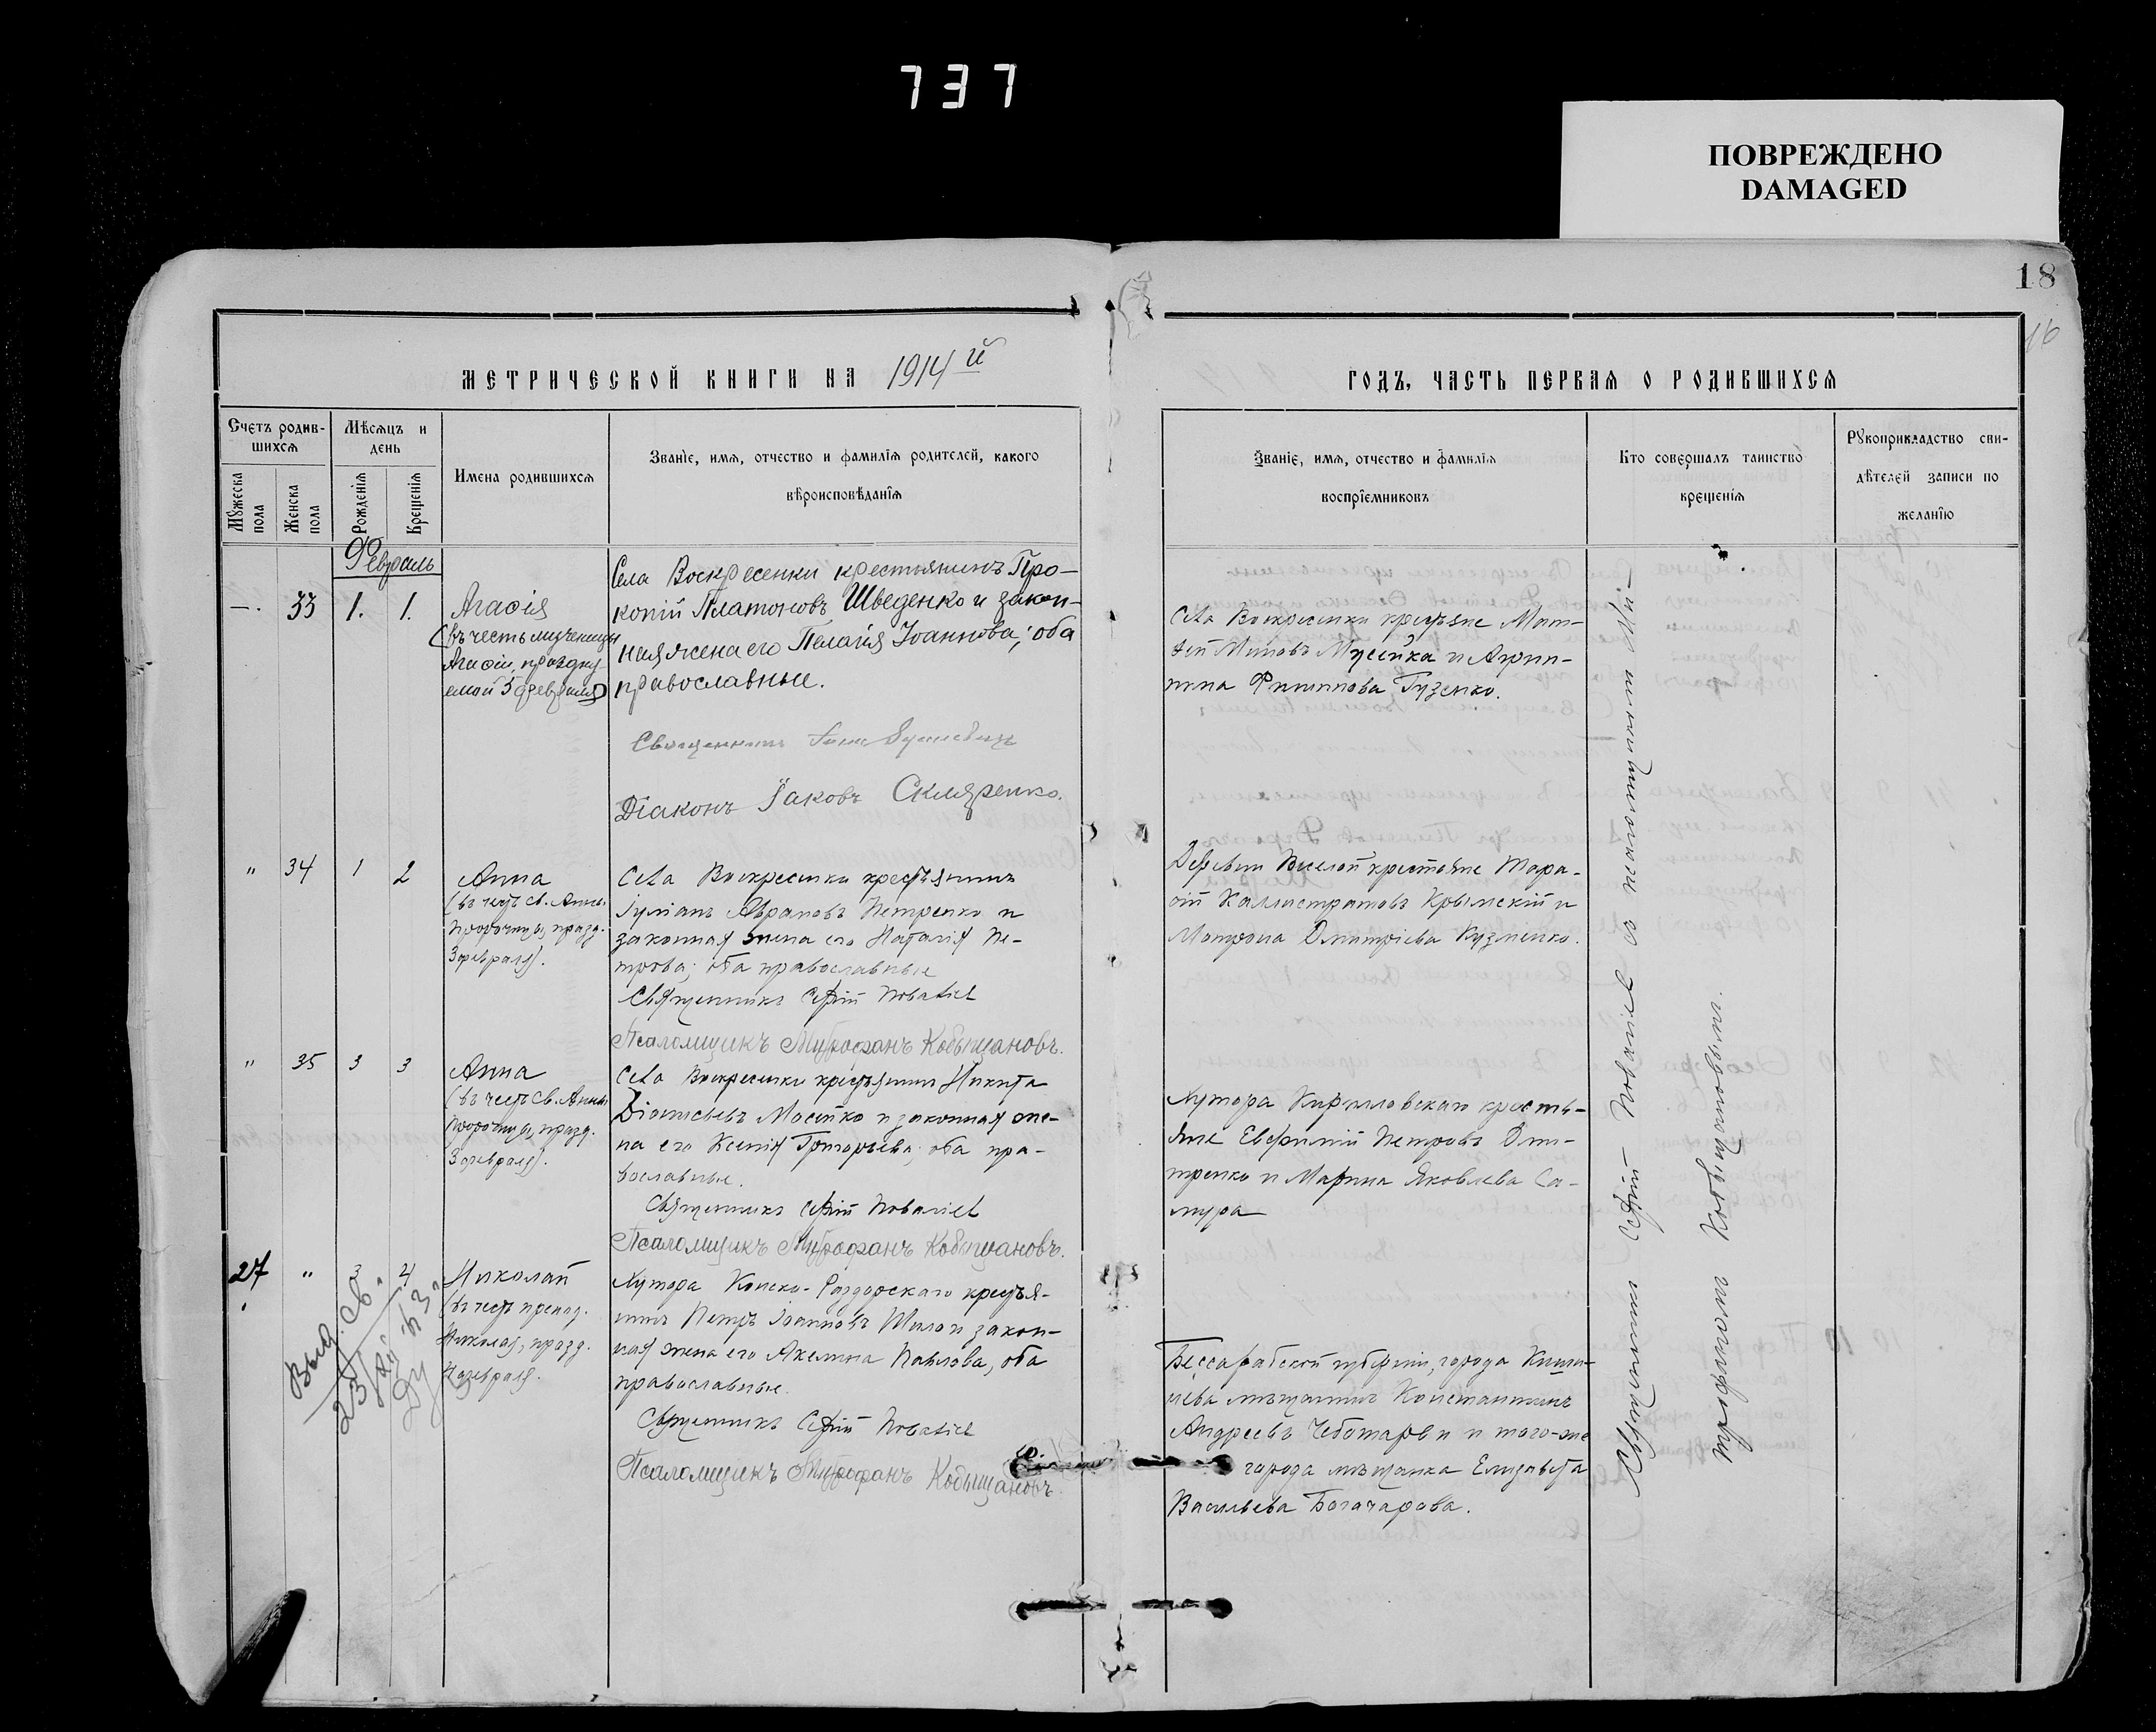 737
ПОВРЕЖДЕНО
DAMAGED
18
16
МЕТРИЧЕСКОЙ КНИГИ НА 1914й
ГОДЪ, ЧАСТЬ ПЕРВАЯ О РОДИВШИХСЯ
Счетъ родив-
шихся
Мужеска
пола
Женска
пола
Мѣсяцъ и
день
Рожденія
Крещенія
Имена родившихся
Званіе, имя, отчество и фамилія родителей, какого
вѣроисповѣданія
Званіе, имя, отчество и фамилія
воспріемниковъ
Кто совершалъ таинство
крещенія
Рукоприкладство сви-
дѣтелей записи по
желанію
Февраль
—. 33 1. 1.
Агафія
(въ честь мученицы
Агафіи, праздну-
емой 5 февраля)
Села Воскресенки крестьянинъ Про-
копій Платоновъ Шведенко и закон-
ная жена его Пелагія Іоаннова; оба
православные.
Священникъ
Діаконъ Іаковъ Скляренко.
Села Воскресенки крестьяне Мат-
фей Миновъ Мусейка и Агрип-
пина Филиппова Гузенко.
" 34 1 2
Анна
(въ честь св. Анны
пророчицы, празд.
3 февраля).
Села Воскресенки крестьянинъ
Іуліанъ Аврамовъ Петренко и
законная жена его Наталія Пе-
трова; оба православные
Священникъ Сергій
Псаломщикъ Митрофанъ Кобыщановъ.
Деревни Веселой крестьяне Тара-
сій Каллистратовъ Крымскій и
Матрона Димитріева Кузменко.
" 35 3 3
Анна
(въ честь св. Анны
пророчицы, празд.
3 февраля).
Села Воскресенки крестьянинъ Никита
Діонисьевъ Мосейко и законная же-
на его Ксенія Григорьева; оба пра-
вославные.
Священникъ Сергій
Псаломщикъ Митрофанъ Кобыщановъ.
Хутора Кирилловскаго кресть-
яне Евфимій Петровъ Дми-
тренко и Марина Яковлева Са-
мура
27 " 3 4
Николай
(въ честь препод.
Николая, празд.
февраля.
Хутора Конско-Раздорскаго крестья-
нинъ Петръ Іоанновъ Шило и закон-
ная жена его Акелина Павлова, оба
православные.
Священникъ Сергій
Псаломщикъ Митрофанъ Кобыщановъ.
Бессарабской губерніи, города Киши-
нева мѣщанинъ Константинъ
Андреевъ Чеботарь и того-же
города мѣщанка Елизавета
Васильева Богачарова.
Выд. св.
Священникъ Сергій съ псаломщикомъ Ми-
трофаномъ Кобыщановымъ.